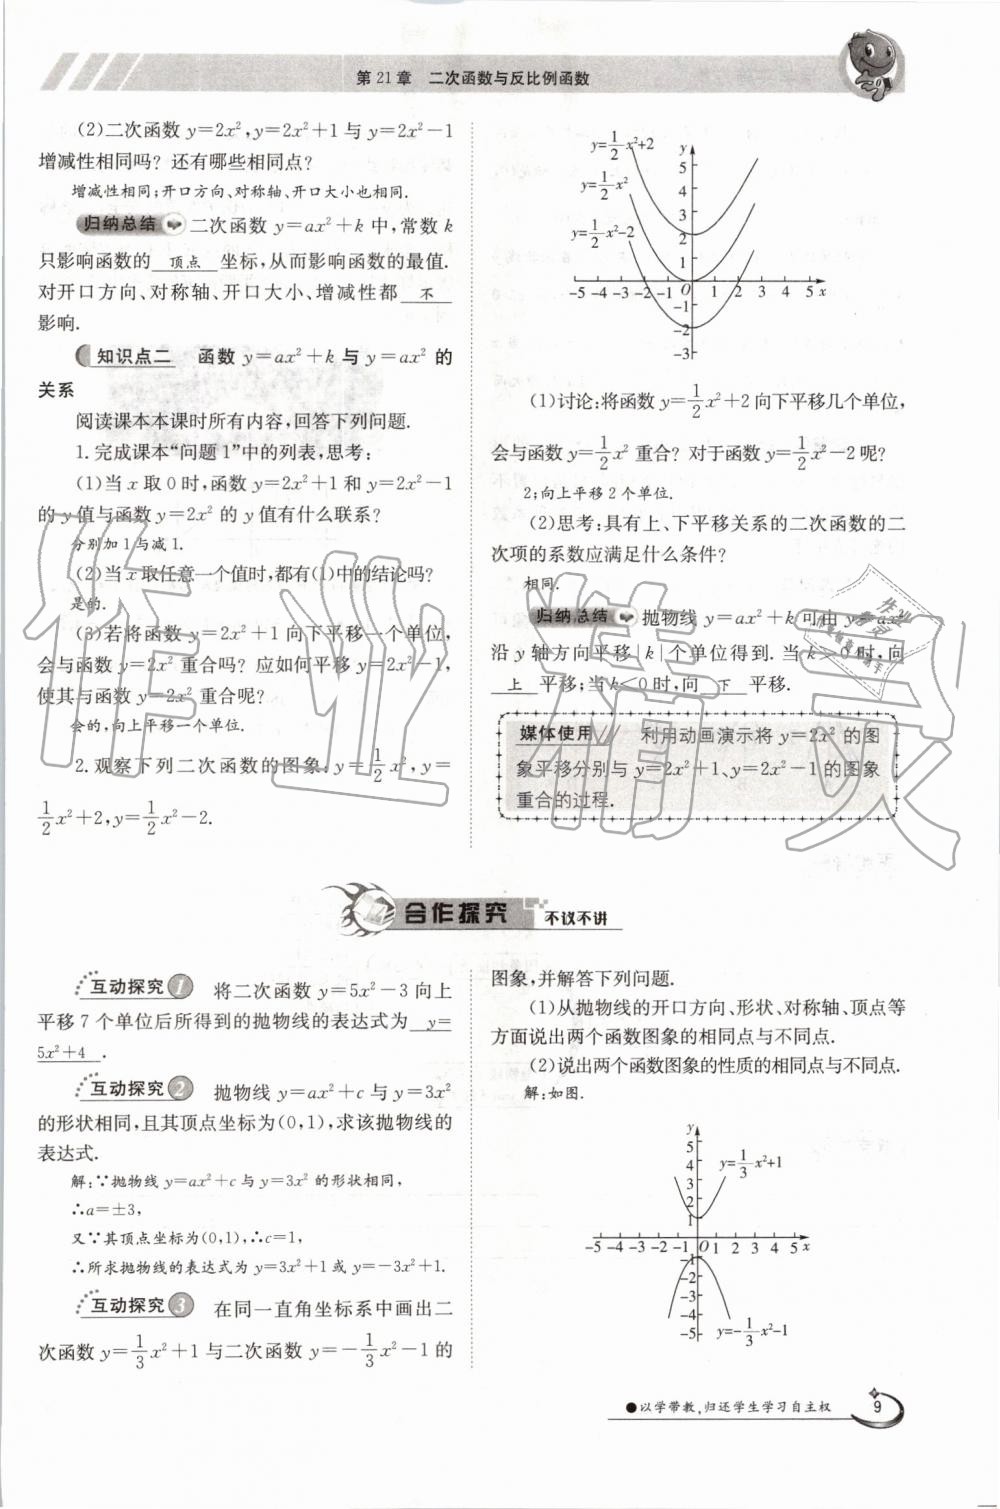 第21章 二次函数与反比例函数
(2)二次函数 y=2x²,y=2x²+1 与 y=2x²-1
增减性相同吗? 还有哪些相同点?
增减性相同;开口方向、对称轴、开口大小也相同.
归纳总结 二次函数 y=ax²+k 中,常数 k
只影响函数的 顶点 坐标,从而影响函数的最值.
对开口方向、对称轴、开口大小、增减性都 不
影响.
知识点二 函数 y=ax²+k 与 y=ax² 的
关系
阅读课本本课时所有内容,回答下列问题.
1. 完成课本“问题 1”中的列表,思考:
(1)当 x 取 0 时,函数 y=2x²+1 和 y=2x²-1
的 y 值与函数 y=2x² 的 y 值有什么联系?
分别加 1 与减 1.
(2)当 x 取任意一个值时,都有(1)中的结论吗?
是的.
(3)若将函数 y=2x²+1 向下平移一个单位,
会与函数 y=2x² 重合吗? 应如何平移 y=2x²-1,
使其与函数 y=2x² 重合呢?
会的,向上平移一个单位.
2. 观察下列二次函数的图象:y=1/2x²,y=
1/2x²+2,y=1/2x²-2.
y=1/2x²+2
y=1/2x²
y=1/2x²-2
y
5
4
3
2
1
-5 -4 -3 -2 -1 O 1 2 3 4 5 x
-1
-2
-3
(1)讨论:将函数 y=1/2x²+2 向下平移几个单位,
会与函数 y=1/2x² 重合? 对于函数 y=1/2x²-2 呢?
2;向上平移 2 个单位.
(2)思考:具有上、下平移关系的二次函数的二
次项的系数应满足什么条件?
相同.
归纳总结 抛物线 y=ax²+k 可由 y=ax²
沿 y 轴方向平移|k|个单位得到. 当 k>0 时,向
上 平移;当 k<0 时,向 下 平移.
媒体使用 利用动画演示将 y=2x² 的图
象平移分别与 y=2x²+1、y=2x²-1 的图象
重合的过程.
合作探究 不议不讲
互动探究 1 将二次函数 y=5x²-3 向上
平移 7 个单位后所得到的抛物线的表达式为 y=
5x²+4 .
互动探究 2 抛物线 y=ax²+c 与 y=3x²
的形状相同,且其顶点坐标为(0,1),求该抛物线的
表达式.
解:∵抛物线 y=ax²+c 与 y=3x² 的形状相同,
∴a=±3,
又∵其顶点坐标为(0,1),∴c=1,
∴所求抛物线的表达式为 y=3x²+1 或 y=-3x²+1.
互动探究 3 在同一直角坐标系中画出二
次函数 y=1/3x²+1 与二次函数 y=-1/3x²-1 的
图象,并解答下列问题.
(1)从抛物线的开口方向、形状、对称轴、顶点等
方面说出两个函数图象的相同点与不同点.
(2)说出两个函数图象的性质的相同点与不同点.
解:如图.
y
5
4
3
2
1
y=1/3x²+1
-5 -4 -3 -2 -1 O 1 2 3 4 5 x
-1
-2
-3
-4
-5
y=-1/3x²-1
●以学带教,归还学生学习自主权
9
作业精灵